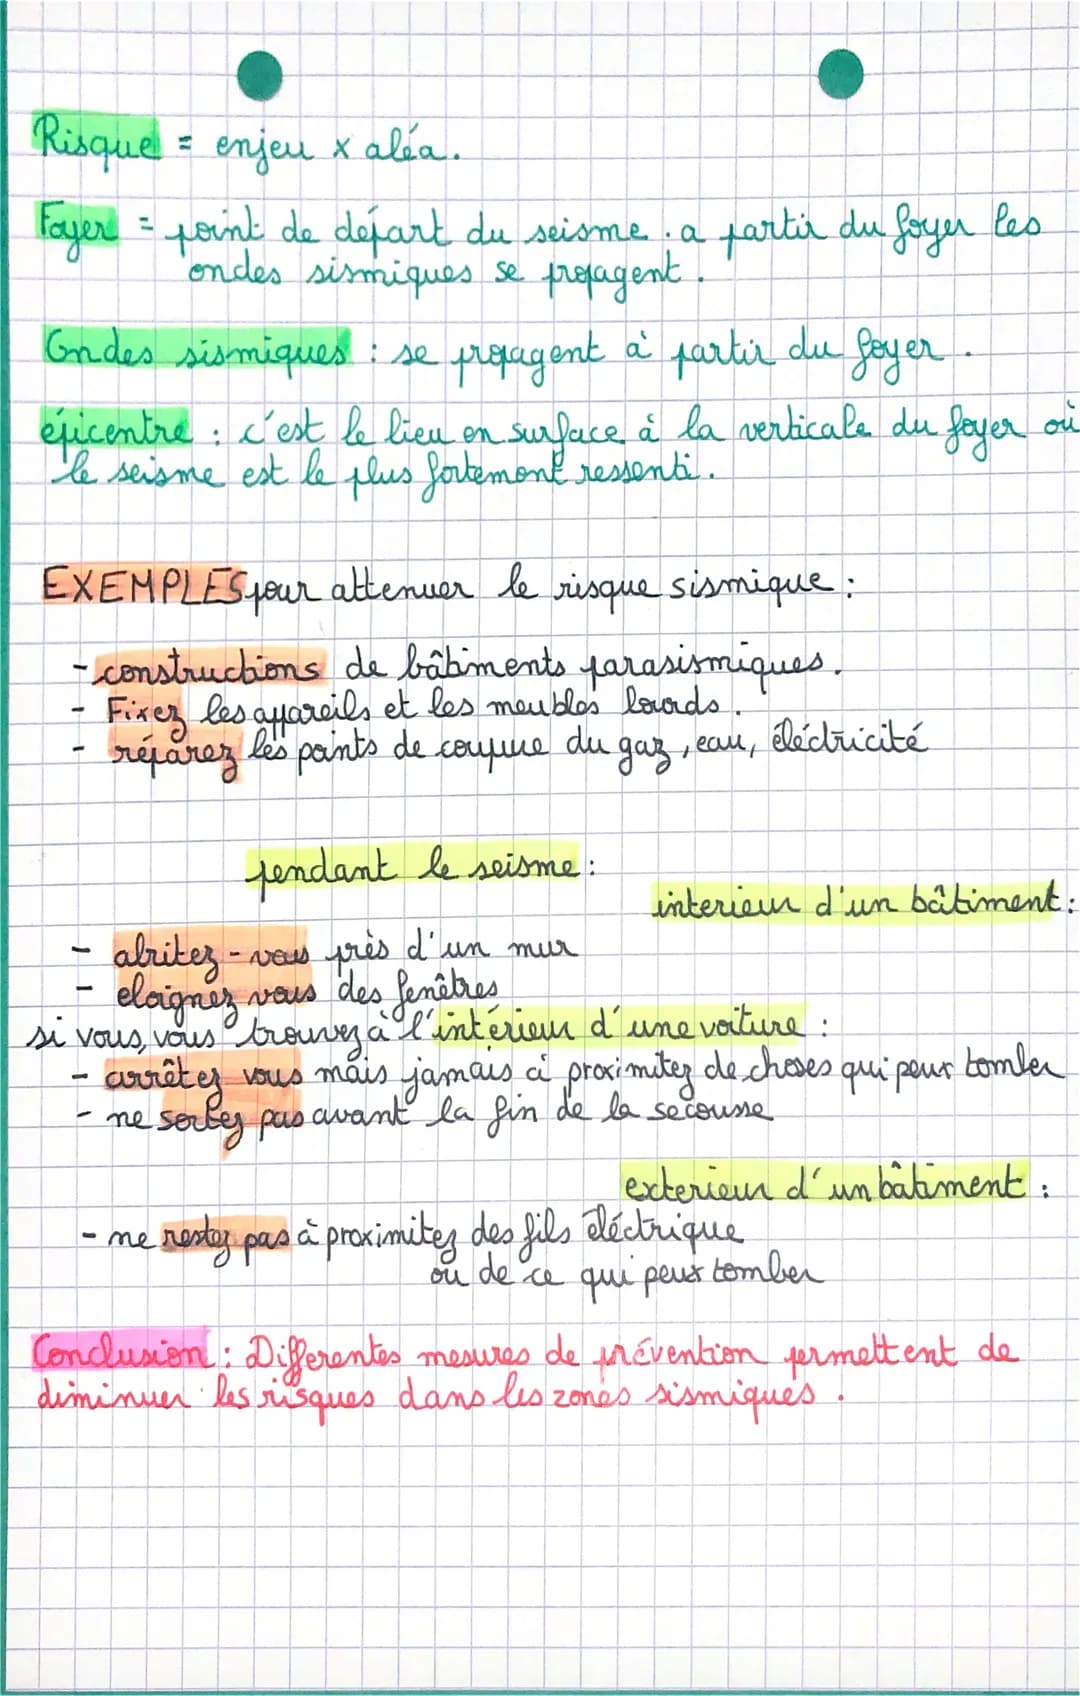 Risque = enjeu x aléa.
Foyer = point de départ du seisme. a partir du foyer les
ondes sismiques se propagent.
Ondes sismiques : se propagent à partir du foyer.
épicentre : c'est le lieu en surface à la verticale du foyer où
le seisme est le plus fortement ressenti.
EXEMPLES pour attenuer le risque sismique :
- constructions de bâtiments parasismiques.
- Fixez les appareils et les meubles lourds.
- réparez les points de coupure du gaz, eau, éléctricité
pendant le seisme :
interieur d'un bâtiment :
- abritez-vous près d'un mur
- eloignez vous des fenêtres
si vous, vous trouvez à l'intérieur d'une voiture :
- arrêtez vous mais jamais à proximitez de choses qui peux tomber
- ne sortez pas avant la fin de la secousse
exterieur d'un bâtiment :
- ne restez pas à proximitez des fils éléctrique
ou de ce qui peux tomber
Conclusion : Differentes mesures de prévention permettent de
diminuer les risques dans les zones sismiques.